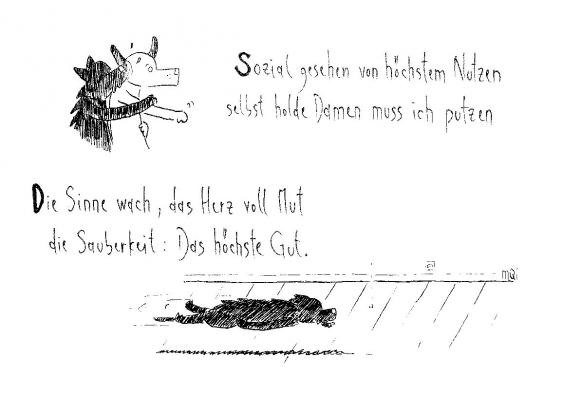 Sozial gesehen von höchstem Nutzen
selbst holde Damen muss ich putzen
Die Sinne wach, das Herz voll Mut
die Sauberkeit: Das höchste Gut.